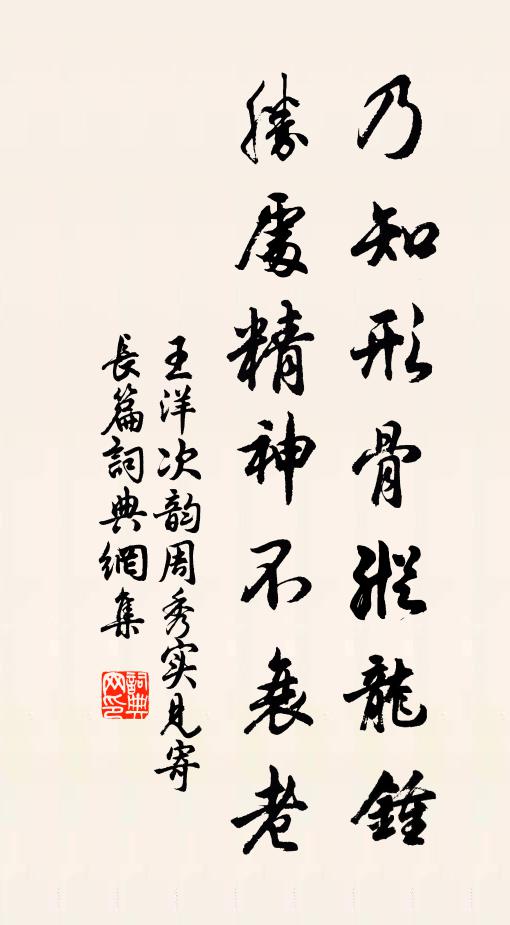 乃知形骨縱龍鍾
勝處精神不衰老
王洋次韵周秀实見寄
長篇詞典網集
詞典网印